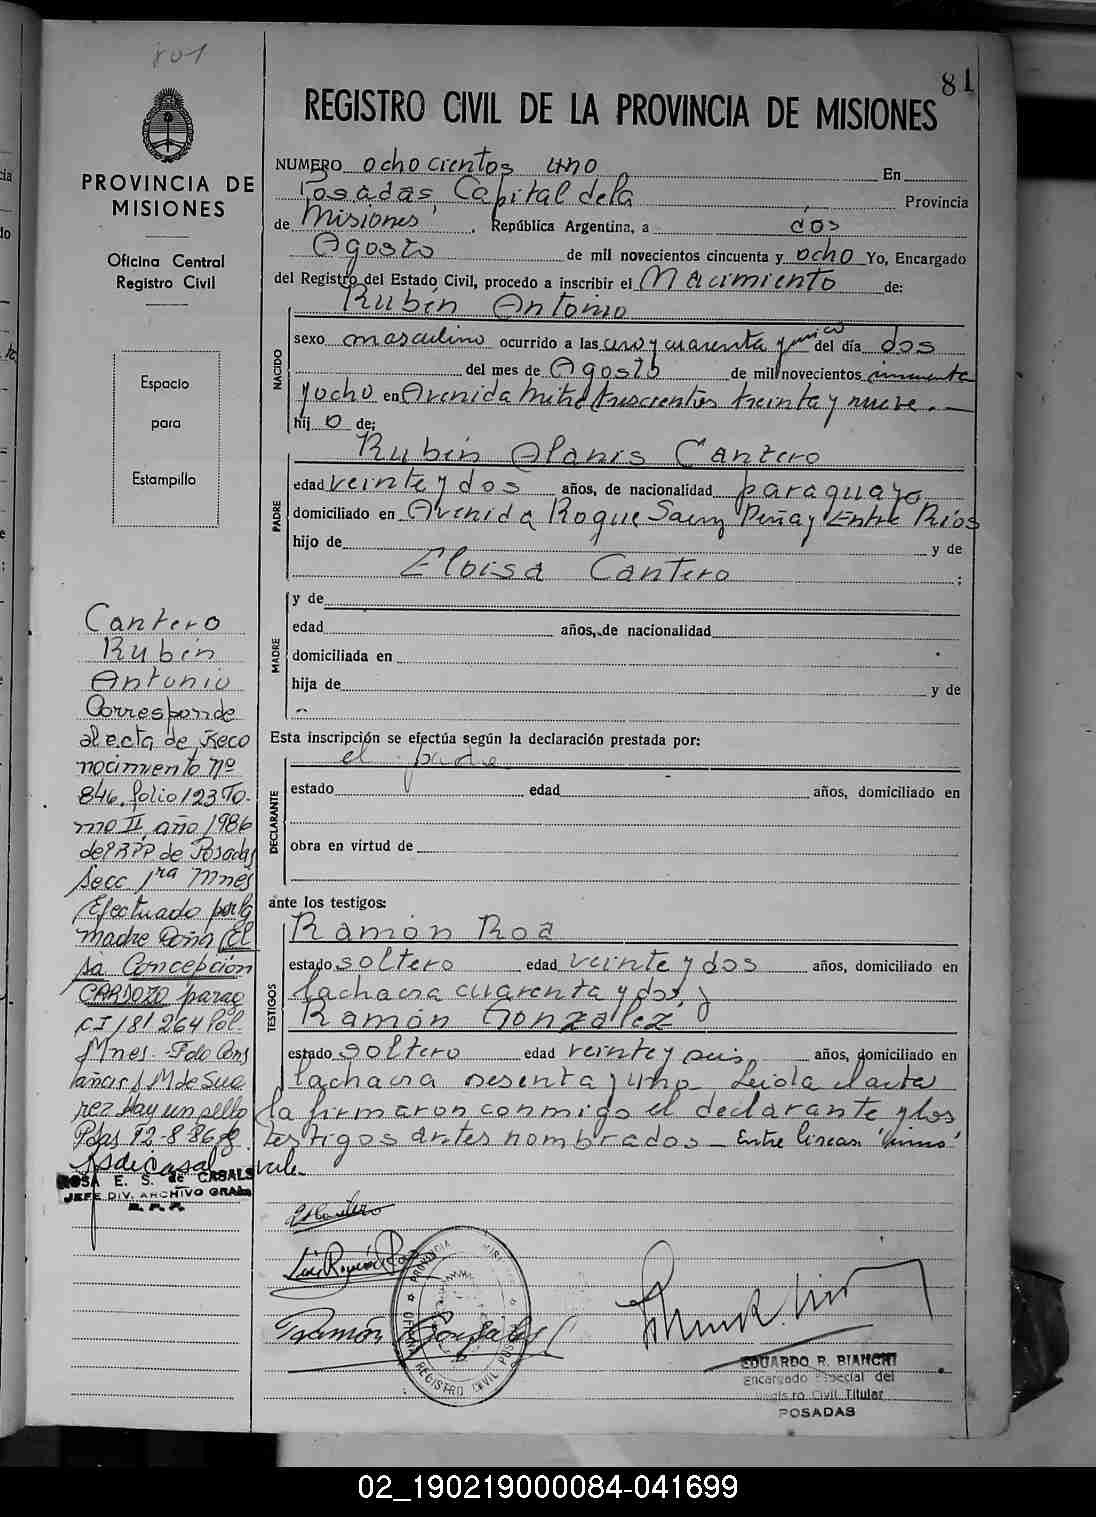 801
81
REGISTRO CIVIL DE LA PROVINCIA DE MISIONES
PROVINCIA DE
MISIONES
Oficina Central
Registro Civil
Espacio
para
Estampillo
NUMERO ochocientos uno En
Posadas Capital de la Provincia
de Misiones, República Argentina, a dos
Agosto de mil novecientos cincuenta y ocho Yo, Encargado
del Registro del Estado Civil, procedo a inscribir el Nacimiento de:
NACIDO
Rubén Antonio
sexo masculino ocurrido a las uno y cuarenta y del día dos
del mes de Agosto de mil novecientos cincuenta
y ocho en Avenida Mitre trescientos treinta y nueve.—
hijo de:
PADRE
Rubén Alanis Cantero
edad veinte y dos años, de nacionalidad paraguaya
domiciliado en Avenida Roque Saenz Peña y Entre Ríos
hijo de y de
Eloisa Cantero ;
MADRE
y de
edad años, de nacionalidad
domiciliada en
hija de y de
Esta inscripción se efectúa según la declaración prestada por:
DECLARANTE
el padre
estado edad años, domiciliado en
obra en virtud de
ante los testigos:
TESTIGOS
Ramón Roa
estado soltero edad veinte y dos años, domiciliado en
la chacra cuarenta y dos, y
Ramón González
estado soltero edad veinte y seis años, domiciliado en
la chacra sesenta y uno Leída el acta
la firmaron conmigo el declarante y los
testigos antes nombrados — Entre lineas
vale.
Cantero
Rubén
Antonio
Corresponde
al acta de Reco
nocimiento Nº
846, folio 123 To-
mo II, año 1986
del RPP de Posadas
Secc 1ra Mnes
Efectuado por la
madre Doña El
sa Concepción
CARDOZO parag
CI 181264 Pol.
Mnes. Fdo Cons
tañares M de Sua
rez Hay un sello
Pdas 12-8-86
ROSA E. S. de CASALS
JEFE DIV. ARCHIVO GRAL.
R. P. P.
Ramón Gonzales
PROVINCIA MISIONES
OFICINA REGISTRO CIVIL POSADAS
EDUARDO R. BIANCHI
Encargado Especial del
Registro Civil Titular
POSADAS
02_190219000084-041699